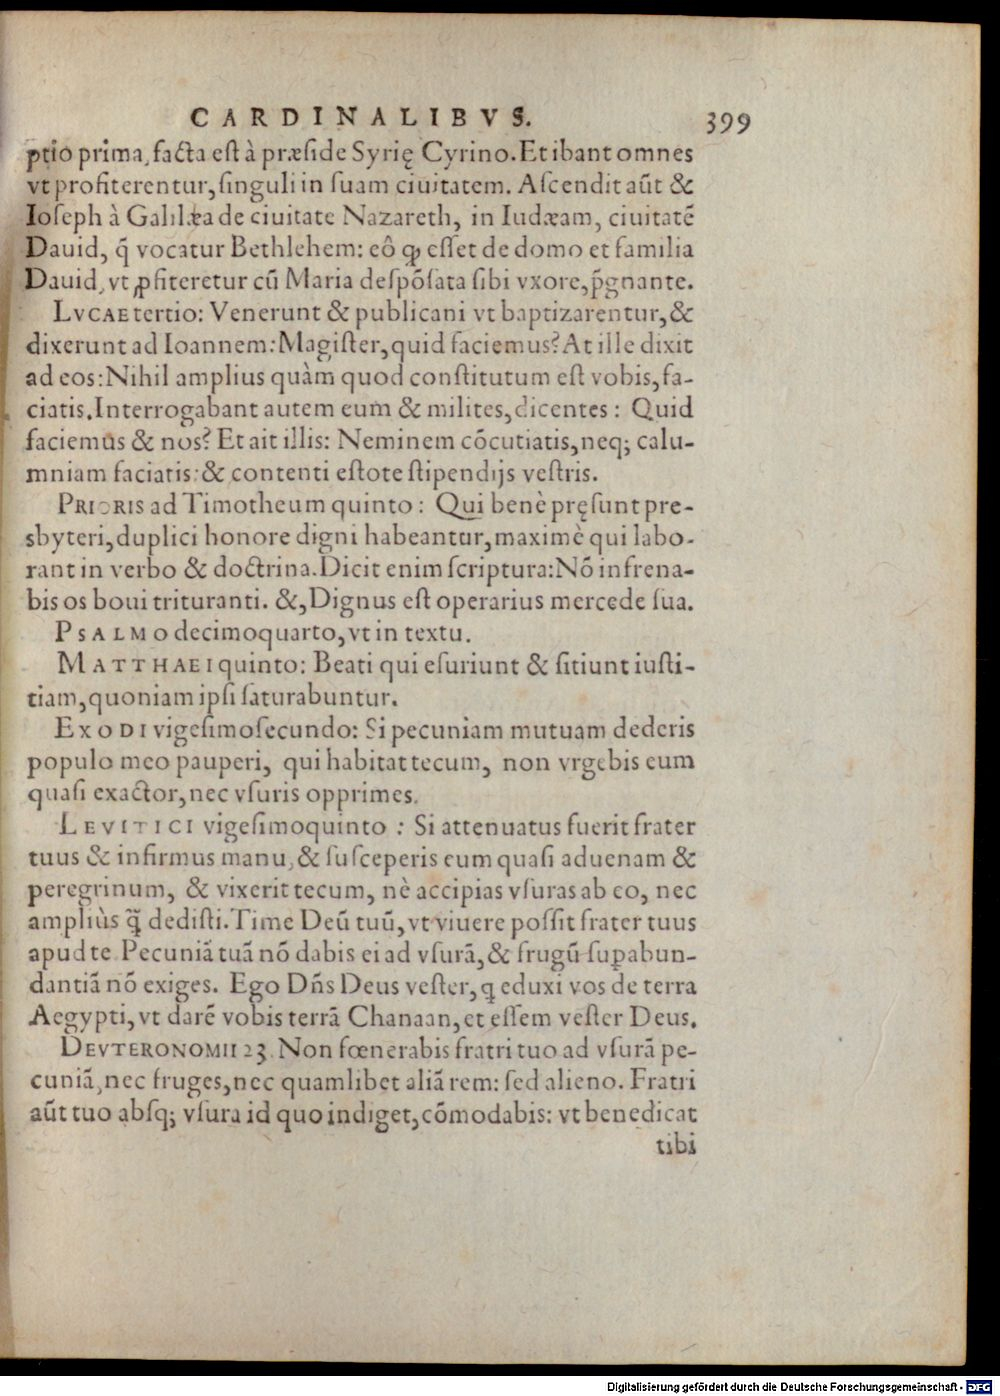 CARDINALIBVS. 399
ptio prima, facta est à præside Syrię Cyrino. Et ibant omnes
vt profiterentur, singuli in suam ciuitatem. Ascendit aūt &
Ioseph à Galilæa de ciuitate Nazareth, in Iudæam, ciuitatē
Dauid, q̃ vocatur Bethlehem: eô ꝙ esset de domo et familia
Dauid, vt ꝓfiteretur cū Maria despōsata sibi vxore, p̃gnante.
LVCAE tertio: Venerunt & publicani vt baptizarentur, &
dixerunt ad Ioannem: Magister, quid faciemus? At ille dixit
ad eos: Nihil amplius quàm quod constitutum est vobis, fa-
ciatis. Interrogabant autem eum & milites, dicentes: Quid
faciemus & nos? Et ait illis: Neminem cōcutiatis, neq; calu-
mniam faciatis: & contenti estote stipendijs vestris.
PRIORIS ad Timotheum quinto: Qui benè pręsunt pre-
sbyteri, duplici honore digni habeantur, maximè qui labo-
rant in verbo & doctrina. Dicit enim scriptura: Nō infrena-
bis os boui trituranti. &, Dignus est operarius mercede sua.
PSALMO decimoquarto, vt in textu.
MATTHAEI quinto: Beati qui esuriunt & sitiunt iusti-
tiam, quoniam ipsi saturabuntur.
EXODI vigesimosecundo: Si pecuniam mutuam dederis
populo meo pauperi, qui habitat tecum, non vrgebis eum
quasi exactor, nec vsuris opprimes.
LEVITICI vigesimoquinto: Si attenuatus fuerit frater
tuus & infirmus manu, & susceperis eum quasi aduenam &
peregrinum, & vixerit tecum, nè accipias vsuras ab eo, nec
ampliùs q̃ dedisti. Time Deū tuū, vt viuere possit frater tuus
apud te. Pecuniā tuā nō dabis ei ad vsurā, & frugū suꝑabun-
dantiā nō exiges. Ego Dñs Deus vester, q eduxi vos de terra
Aegypti, vt darē vobis terrā Chanaan, et essem vester Deus.
DEVTERONOMII 23. Non fœnerabis fratri tuo ad vsurā pe-
cuniā, nec fruges, nec quamlibet aliā rem: sed alieno. Fratri
aūt tuo absq; vsura id quo indiget, cōmodabis: vt benedicat
tibi
Digitalisierung gefördert durch die Deutsche Forschungsgemeinschaft - DFG